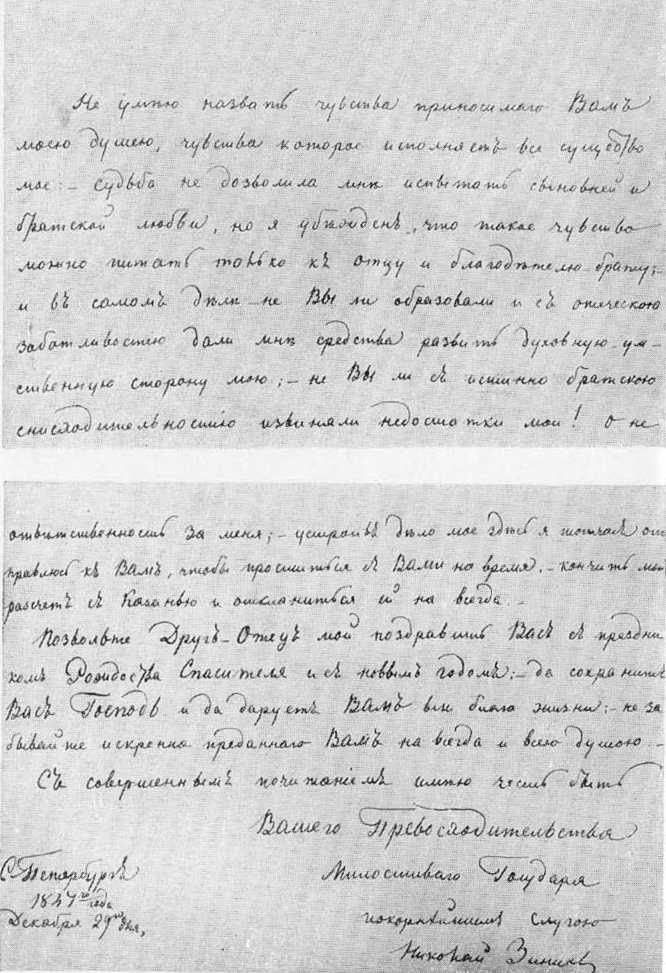 Не умѣю назвать чувства приносимаго Вамъ
моею душею, чувства которое исполняетъ все существо
мое: – судьба не дозволила мнѣ испытать сыновней и
братской любви, но я убѣжденъ, что такое чувство
можно питать только къ отцу и благодѣтелю-брату; –
и въ самомъ дѣлѣ – не Вы ли образовали и съ отеческою
заботливостію дали мнѣ средства развить духовную ум-
ственную сторону мою; – не Вы ли съ истинно братскою
снисходительностію извиняли недостатки мои! О не
отвѣтственность за меня; – устроивъ дѣло мое здѣсь я тотчасъ от
правлюсь къ Вамъ, чтобы проститься съ Вами на время, – кончить мой
расчетъ съ Казанью и откланиться ей на всегда. –
Позвольте Другъ-Отецъ мой поздравить Васъ съ праздни
комъ Рождества Спасителя и съ новымъ годомъ; – да сохранитъ
Васъ Господь и да даруетъ Вамъ всѣ блага жизни: – не за
бывайте искренно преданнаго Вамъ на всегда и всею душою –
Съ совершеннымъ почитаніемъ имѣю честь быть
Вашего Превосходительства
Милостиваго Государя
покорнѣйшимъ слугою
Николай Зининъ
С. Петербургъ
1847го года
Декабря 29го дня,